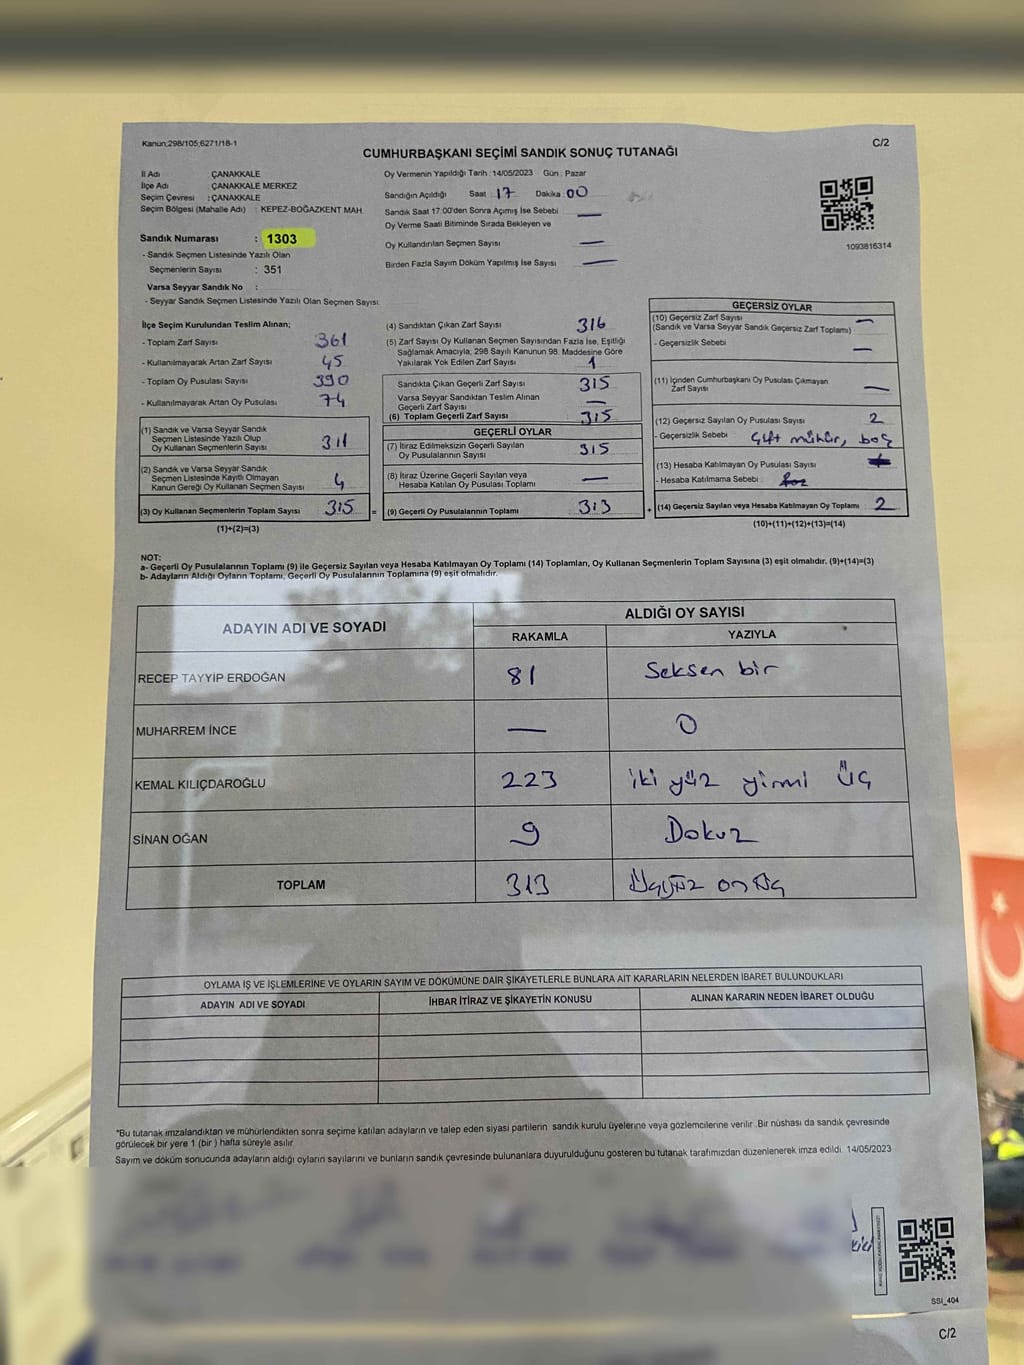 Kanun;298/105;6271/18-1
C/2
CUMHURBAŞKANI SEÇİMİ SANDIK SONUÇ TUTANAĞI
İl Adı ÇANAKKALE
İlçe Adı : ÇANAKKALE MERKEZ
Seçim Çevresi : ÇANAKKALE
Seçim Bölgesi (Mahalle Adı) : KEPEZ-BOĞAZKENT MAH.
Oy Vermenin Yapıldığı Tarih : 14/05/2023 Gün : Pazar
Sandığın Açıldığı Saat : 17 Dakika : 00
Sandık Saat 17:00'den Sonra Açımış İse Sebebi —
Oy Verme Saati Bitiminde Sırada Bekleyen ve
Oy Kullandırılan Seçmen Sayısı —
Birden Fazla Sayım Döküm Yapılmış İse Sayısı —
1093816314
Sandık Numarası : 1303
- Sandık Seçmen Listesinde Yazılı Olan
Seçmenlerin Sayısı : 351
Varsa Seyyar Sandık No :
- Seyyar Sandık Seçmen Listesinde Yazılı Olan Seçmen Sayısı:
İlçe Seçim Kurulundan Teslim Alınan;
- Toplam Zarf Sayısı 361
- Kullanılmayarak Artan Zarf Sayısı 45
- Toplam Oy Pusulası Sayısı 390
- Kullanılmayarak Artan Oy Pusulası 74
(1) Sandık ve Varsa Seyyar Sandık
Seçmen Listesinde Yazılı Olup
Oy Kullanan Seçmenlerin Sayısı 311
(2) Sandık ve Varsa Seyyar Sandık
Seçmen Listesinde Kayıtlı Olmayan
Kanun Gereği Oy Kullanan Seçmen Sayısı 4
(3) Oy Kullanan Seçmenlerin Toplam Sayısı 315 =
(1)+(2)=(3)
(4) Sandıktan Çıkan Zarf Sayısı 316
(5) Zarf Sayısı Oy Kullanan Seçmen Sayısından Fazla İse, Eşitliği
Sağlamak Amacıyla; 298 Sayılı Kanunun 98. Maddesine Göre
Yakılarak Yok Edilen Zarf Sayısı 1
Sandıkta Çıkan Geçerli Zarf Sayısı 315
Varsa Seyyar Sandıktan Teslim Alınan
Geçerli Zarf Sayısı —
(6) Toplam Geçerli Zarf Sayısı 315
GEÇERLİ OYLAR
(7) İtiraz Edilmeksizin Geçerli Sayılan
Oy Pusulalarının Sayısı 315
(8) İtiraz Üzerine Geçerli Sayılan veya
Hesaba Katılan Oy Pusulası Toplamı —
(9) Geçerli Oy Pusulalarının Toplamı 313 +
GEÇERSİZ OYLAR
(10) Geçersiz Zarf Sayısı —
(Sandık ve Varsa Seyyar Sandık Geçersiz Zarf Toplamı)
- Geçersizlik Sebebi —
(11) İçinden Cumhurbaşkanı Oy Pusulası Çıkmayan
Zarf Sayısı —
(12) Geçersiz Sayılan Oy Pusulası Sayısı 2
- Geçersizlik Sebebi Çift mühür, boş
(13) Hesaba Katılmayan Oy Pusulası Sayısı
- Hesaba Katılmama Sebebi :
(14) Geçersiz Sayılan veya Hesaba Katılmayan Oy Toplamı 2
(10)+(11)+(12)+(13)=(14)
NOT:
a- Geçerli Oy Pusulalarının Toplamı (9) ile Geçersiz Sayılan veya Hesaba Katılmayan Oy Toplamı (14) Toplamları, Oy Kullanan Seçmenlerin Toplam Sayısına (3) eşit olmalıdır. (9)+(14)=(3)
b- Adayların Aldığı Oyların Toplamı, Geçerli Oy Pusulalarının Toplamına (9) eşit olmalıdır.
ADAYIN ADI VE SOYADI
ALDIĞI OY SAYISI
RAKAMLA YAZIYLA
RECEP TAYYIP ERDOĞAN 81 Seksen bir
MUHARREM İNCE — 0
KEMAL KILIÇDAROĞLU 223 iki yüz yirmi üç
SİNAN OĞAN 9 Dokuz
TOPLAM 313 Üçyüz on üç
OYLAMA İŞ VE İŞLEMLERİNE VE OYLARIN SAYIM VE DÖKÜMÜNE DAİR ŞİKAYETLERLE BUNLARA AİT KARARLARIN NELERDEN İBARET BULUNDUKLARI
ADAYIN ADI VE SOYADI İHBAR İTİRAZ VE ŞİKAYETİN KONUSU ALINAN KARARIN NEDEN İBARET OLDUĞU
*Bu tutanak imzalandıktan ve mühürlendikten sonra seçime katılan adayların ve talep eden siyasi partilerin sandık kurulu üyelerine veya gözlemcilerine verilir. Bir nüshası da sandık çevresinde
görülecek bir yere 1 (bir ) hafta süreyle asılır.
Sayım ve döküm sonucunda adayların aldığı oyların sayılarını ve bunların sandık çevresinde bulunanlara duyurulduğunu gösteren bu tutanak tarafımızdan düzenlenerek imza edildi. 14/05/2023
SSI_404
C/2